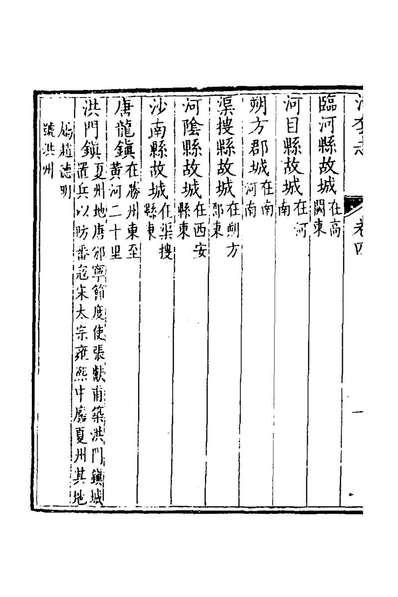 河套志 卷四 一
臨河縣故城在高闕東
河目縣故城在河南
朔方郡城在南河南
渠搜縣故城在朔方郡東
河陰縣故城在西安縣東
沙南縣故城在渠搜縣東
唐龍鎮在勝州東至黃河二十里
洪門鎮夏州地唐邠寧節度使張獻甫築洪門鎮城置兵以防番寇宋太宗雍熙中廢夏州其地
為趙德明
號洪州